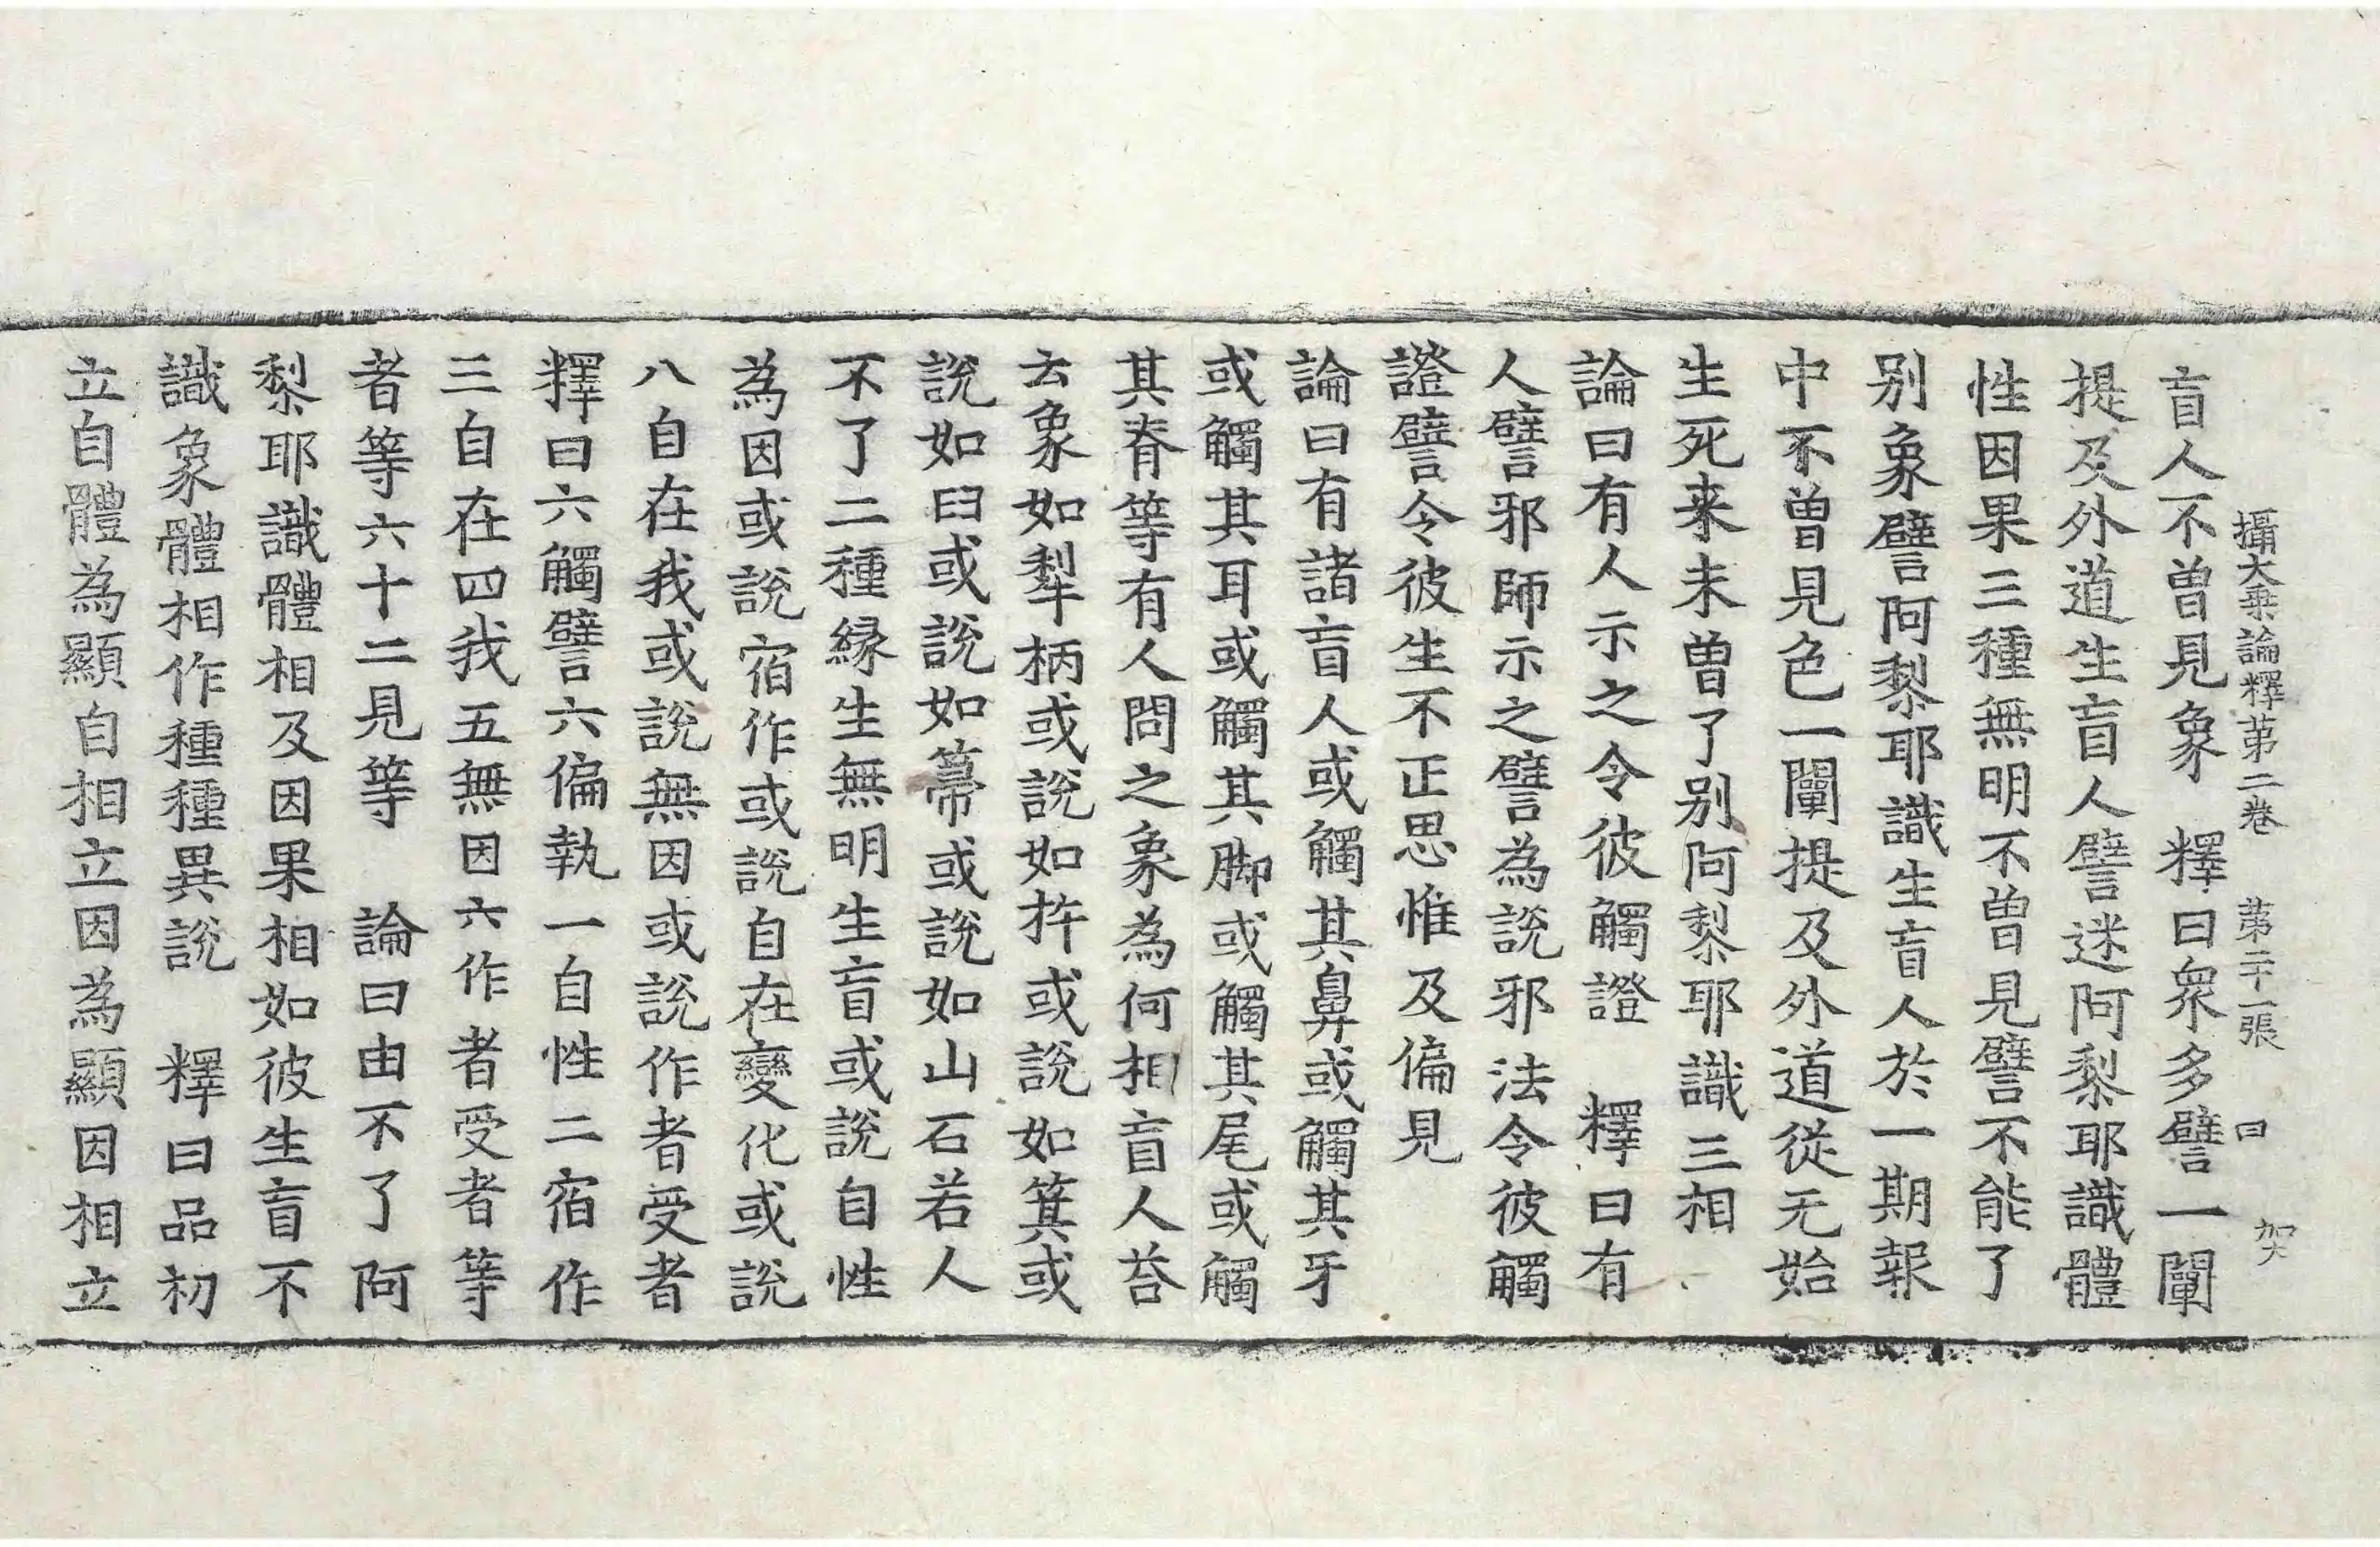 攝大乗論釋苐二卷 苐二十一張 曰
盲人不曽見象 釋曰衆多譬一闡
提及外道生盲人譬迷阿黎耶識體
性因果三種無明不曽見譬不能了
别象譬阿黎耶識生盲人於一期報
中不曽見色一闡提及外道從无始
生死来未曽了别阿黎耶識三相
論曰有人示之令彼觸證 釋曰有
人譬邪師示之譬為說邪法令彼觸
證譬令彼生不正思惟及偏見
論曰有諸盲人或觸其鼻或觸其牙
或觸其耳或觸其脚或觸其尾或觸
其脊等有人問之象為何相盲人荅
云象如犁柄或說如杵或說如箕或
說如臼或說如篲或說如山石若人
不了二種緣生無明生盲或說自性
為因或說宿作或說自在變化或說
八自在我或說無因或說作者受者
釋曰六觸譬六偏執一自性二宿作
三自在四我五無因六作者受者等
者等六十二見等 論曰由不了阿
黎耶識體相及因果相如彼生盲不
識象體相作種種異說 釋曰品初
立自體為顯自相立因為顯因相立